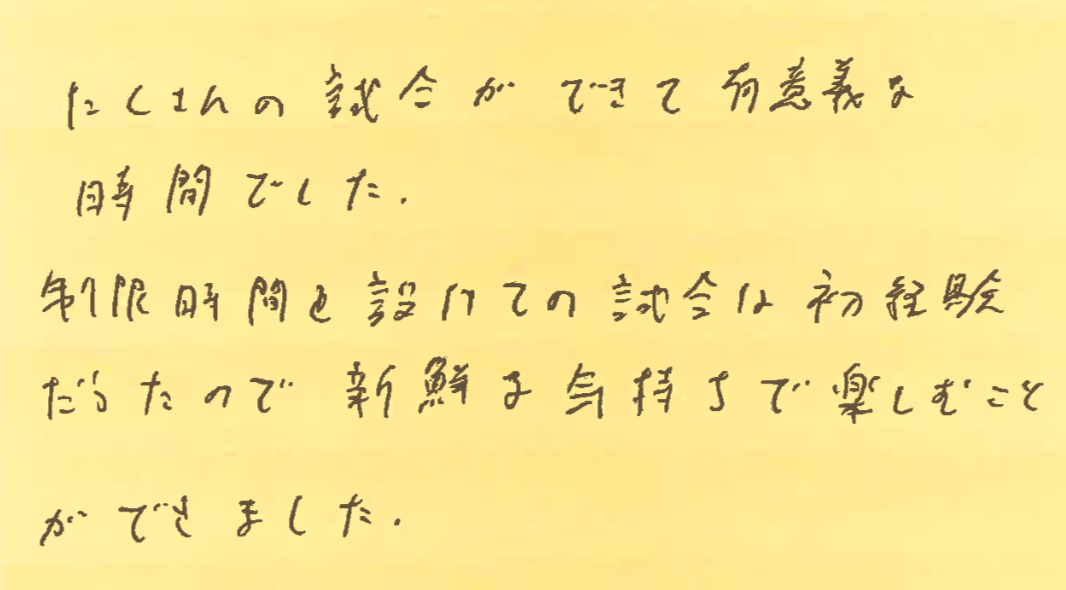 たくさんの試合ができて有意義な
時間でした.
制限時間を設けての試合は初経験
だったので新鮮な気持ちで楽しむこと
ができました.